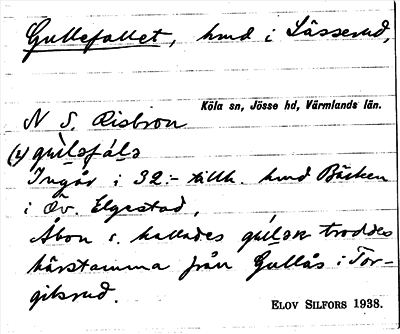 Gullefallet, hmd i Lässerud,
Köla sn, Jösse hd, Värmlands län.
N S. Risbron
(2) gùlsfáls
Ingår i 32:- tillh. hmd Bäcken
i Öv. Elgestad,
Åbon s. kallades gùlsn troddes
härstamma från Gullås i Tor-
gilsrud.
ELOV SILFORS 1938.